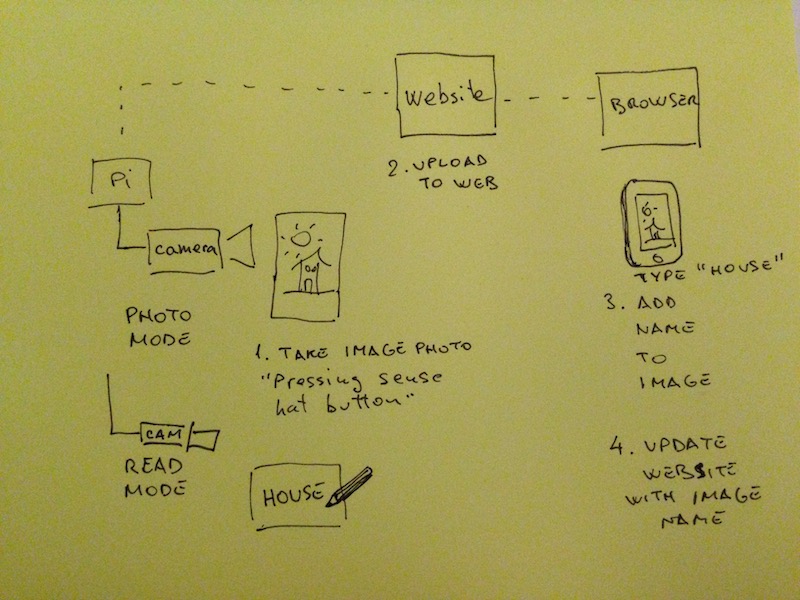 Website
BROWSER
2. UPLOAD
TO WEB
Pi
camera
PHOTO
MODE
1. TAKE IMAGE PHOTO
"Pressing sense
hat button"
TYPE "HOUSE"
3. ADD
NAME
TO
IMAGE
CAM
READ
MODE
HOUSE
4. UPDATE
WEBSITE
WITH IMAGE
NAME